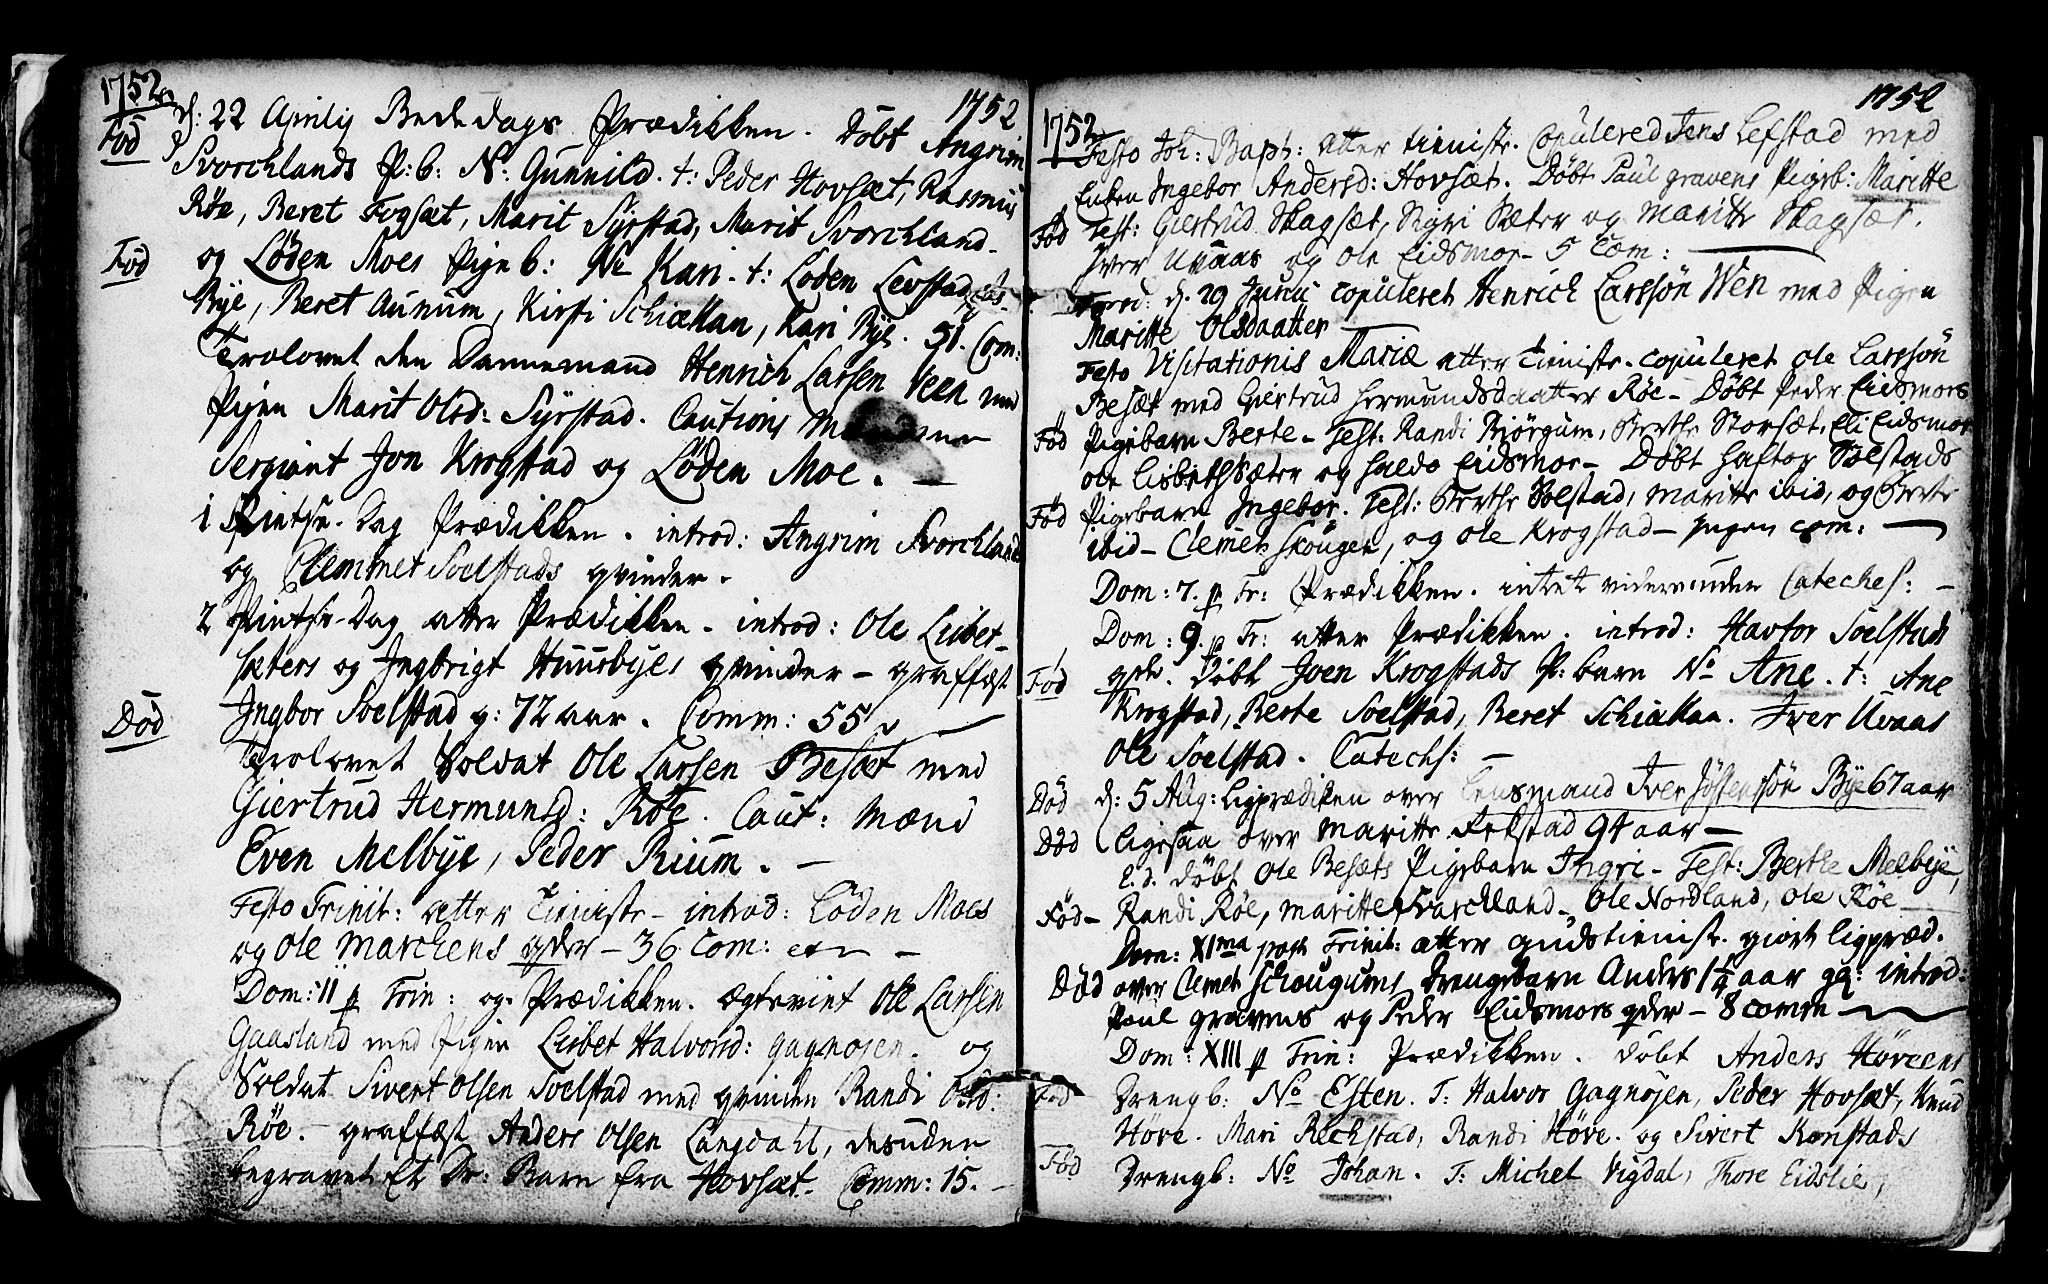 1752
1752
d: 22 Aprilis Bededags Prædikken. Døbt Angrim
Fød
Svorchlands P: b: No: Gunnild. t: Peder Hovsæt, Rasmus
Røe, Beret Fogsæt, Marit Syrstad, Marit Svorchland
Fød
og Løden Moes Pigeb: No Kari. t: Loden Levstad
Bye, Beret Aunum, Kirsti Schiækkan, Kari Bye. 51. Com:
Trolovet den Dannemand Henrich Larsen Veen med
Pigen Marit Olsd: Syrstad. Cautions
Sergiant Jon Krogstad og Løden Moe. —
1 Pintse-Dag Prædikken. introd: Angrim Svorchlands
og Clemmet Soelstads qvinder.
2 Pintse-Dag atter Prædikken. introd: Ole Lisbet-
sæters og Ingbrigt Huusbyes qvinder – graffæst
Død
Ingbor Soelstad g: 72 aar. Comm: 55
Trolovet Soldat Ole Larsen Besæt med
Giertrud Hermunsd: Røe. Caut: Mænd
Even Melbye, Peder Rium. —
Festo Trinit: atter Tieniste – introd: Løden Moes
og Ole Marchens qder – 36 Com:
Dom: II p Trin: og Prædikken. Ægteviet Ole Larsen
Gaasland med Pigen Lisbet Halvord: Gagnøjen. og
Soldat Sivert Olsen Soelstad med qvinden Randi Olsd:
Røe. – graffæst Anders Olsen Langdahl, desuden
begravet Et Dr: Barn fra Hovsæt. Comm: 15. –
1752
1752
Festo Joh: Bapt: atter tienistr. Copulered Jens Lefstad med
Enken Ingebor Andersd: Hovsæt. Døbt Paul gravens Pigeb: Maritte
Fød
Test: Giertrud Skagsæt, Sigri Sæter og Maritte Skagsæt.
Iver Uvaas og Ole Eidsmor – 5 Com:
d. 29 Junii copuleret Henrich Larssøn Wen med Pigen
Maritte Olsdaatter
Festo Visitationis Mariæ atter tienistr. copuleret Ole Larssøn
Besæt med Giertrud Hermundsdaatter Røe – Døbt Peder Eidsmors
Fød
Pigebarn Berte – Test: Randi Bjørgum, Berthe Storsæt, Eli Eidsmor
ole Lisbethsæter og Haldo Eidsmor – Døbt Haftor Solstads
Fød
Pigebarn Ingebor. Test: Berthe Solstad, Maritte ibid, og Berte
ibid – Clemet Skougen, og Ole Krogstad – Ingen com:
Dom: 7. p Tr: Prædikken. intet videre uden Cateches: –
Dom: 9. p Tr: atter Prædikken. introd: Havtor Soelstads
Fød
qde. Døbt Joen Krogstads P: barn No Ane. t: Ane
Krogstad, Berte Soelstad, Beret Schiækkan. Iver Uvaas
Ole Soelstad. Catechs: –
Død
d: 5 Aug: Ligprædiken over Lensmand Iver Jöstenssøn Bye 67 aar
Død
ligesaa over Maritte Fikstad 94 aar –
e. d. døbt Ole Besæts Pigebarn Ingri – Test: Berthe Melbye,
Fød –
Randi Røe, Maritte Svarchland – Ole Nordland, Ole Røe
Dom: XIma post Trinit: atter gudstienist. giort ligpræd.
Død
over Clemet Schougums Drengebarn Anders 1 1/4 aar gl: introd:
Poul gravens og Peder Eidsmors qder – 8 comm
Dom: XIII p Trin: Prædikken. døbt Anders Høveens
Fød
Drengb: No Esten. T: Halvor Gagnøjen, Peder Hovsæt, Knud
Høve. Mari Reckstad, Randi Høve. og Sivert Konstads
Fød
Drengb: No Johan. T: Michel Vigdal, Thore Eidslie,